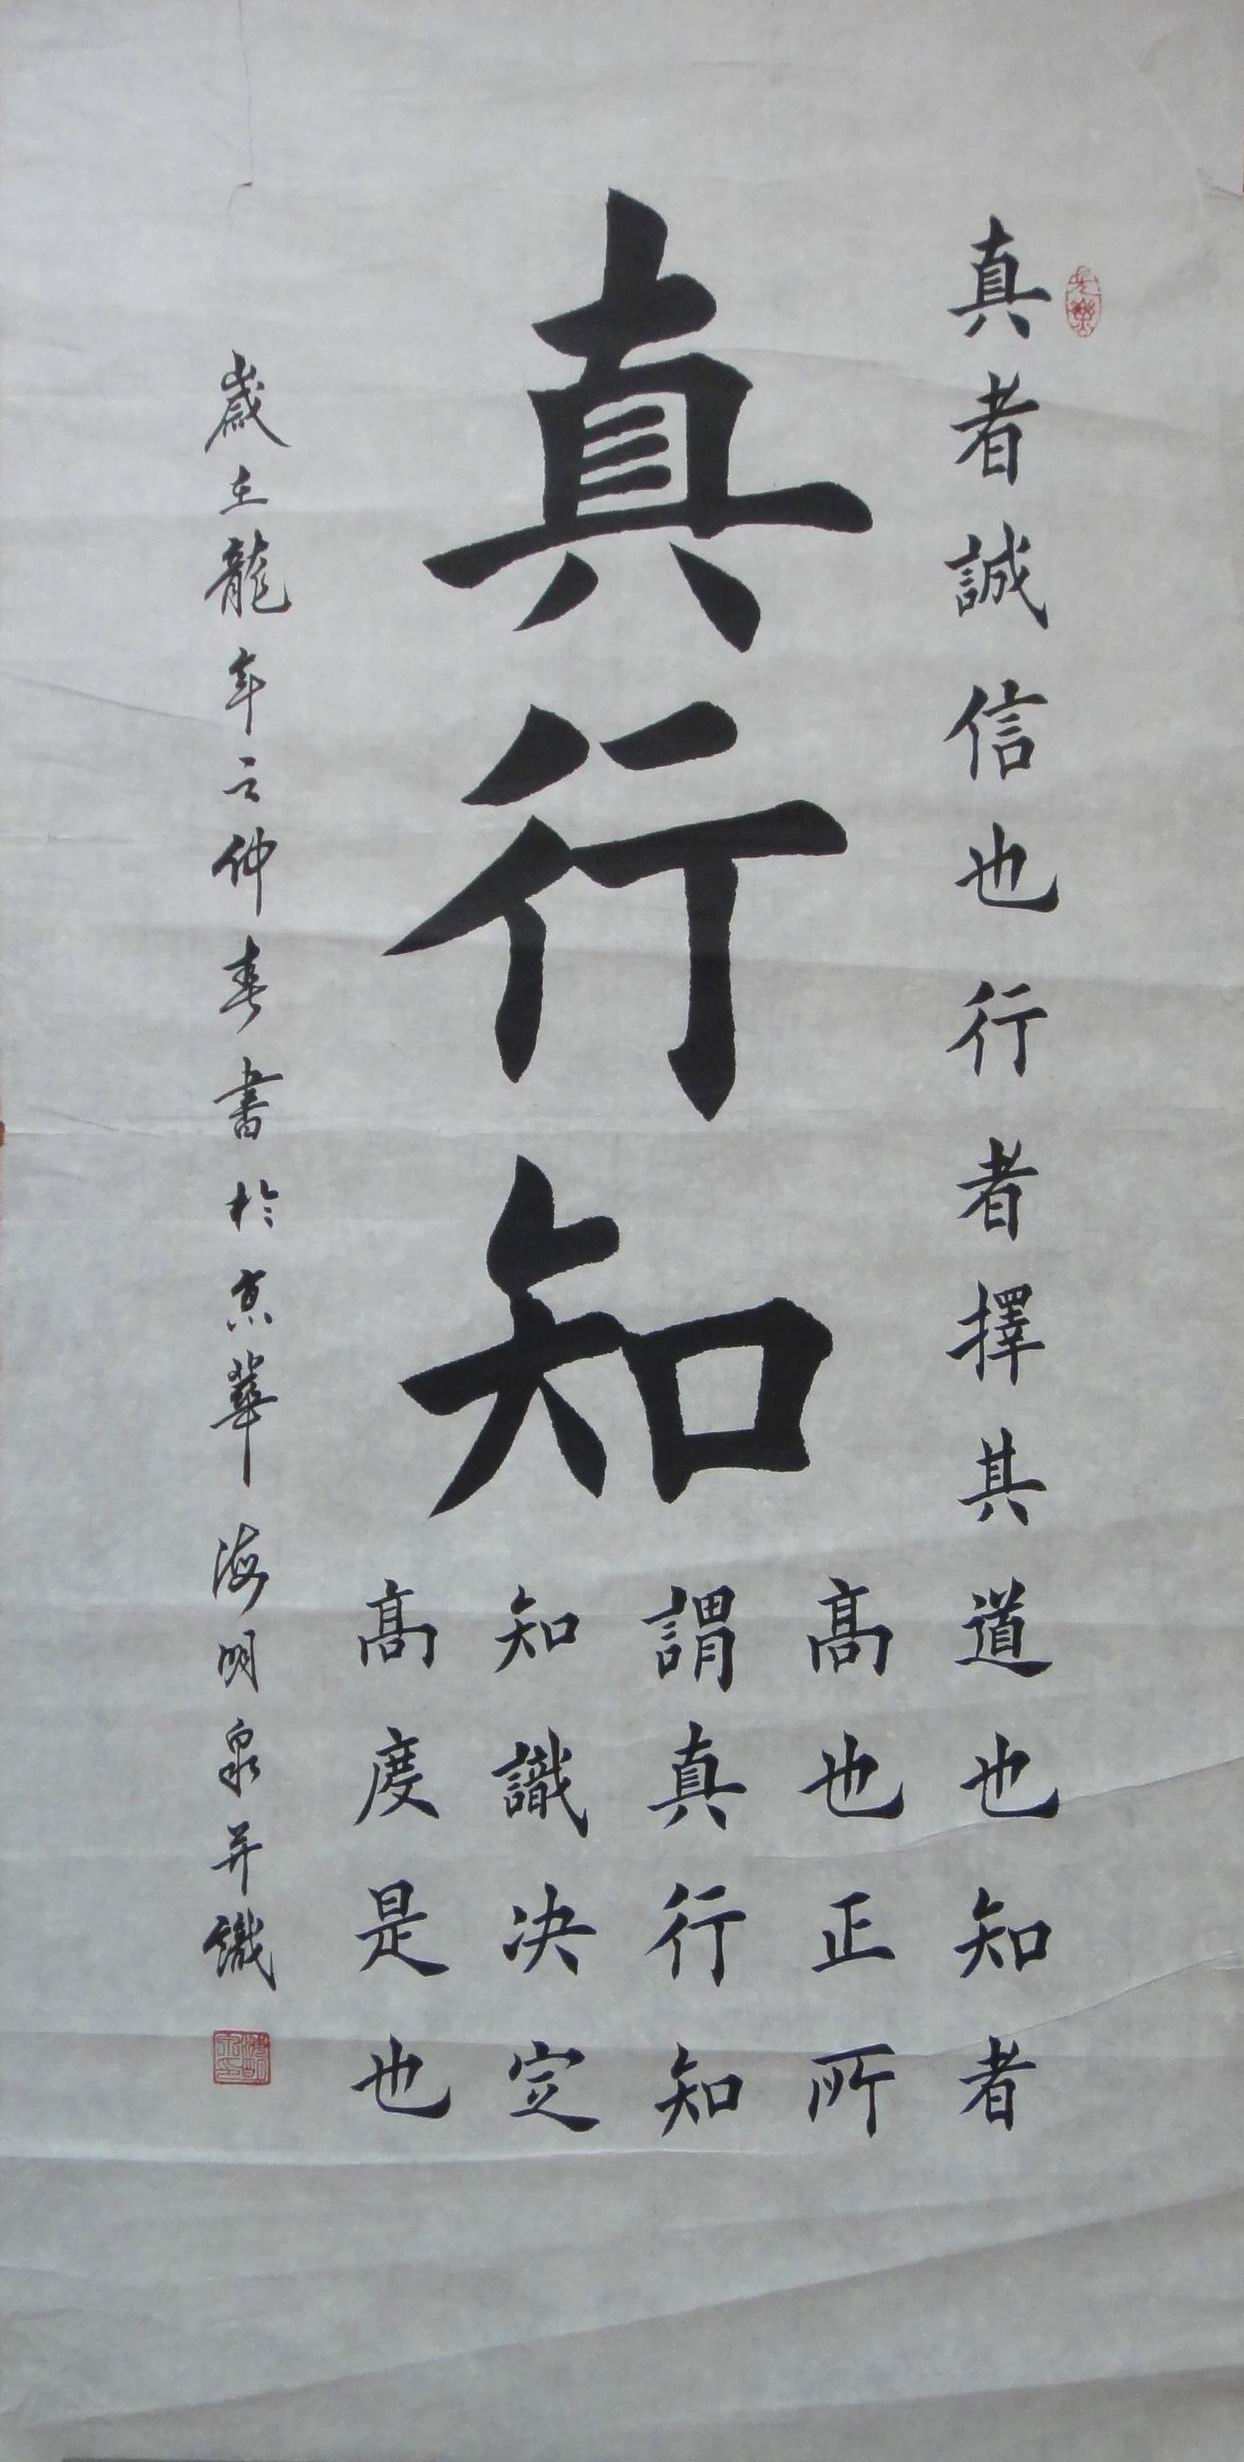 真者誠信也行者擇其道也知者
高也正所
謂真行知
知識決定
高度是也
真行知
歲在龍年之仲春書於京華海明泉并識